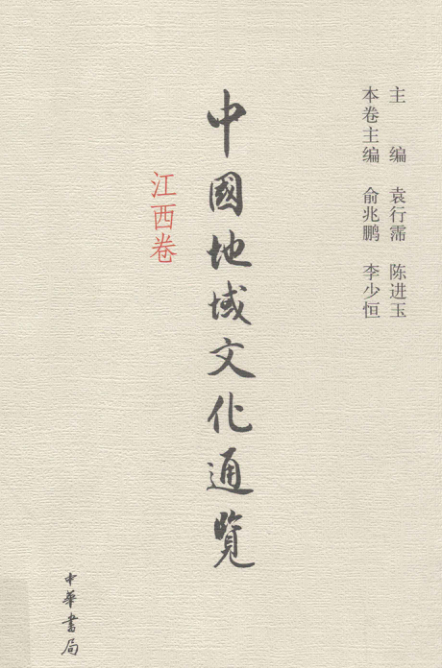 主 编 袁行霈 陈进玉
本卷主编 俞兆鹏 李少恒
中國地域文化通覽
江西卷
中華書局